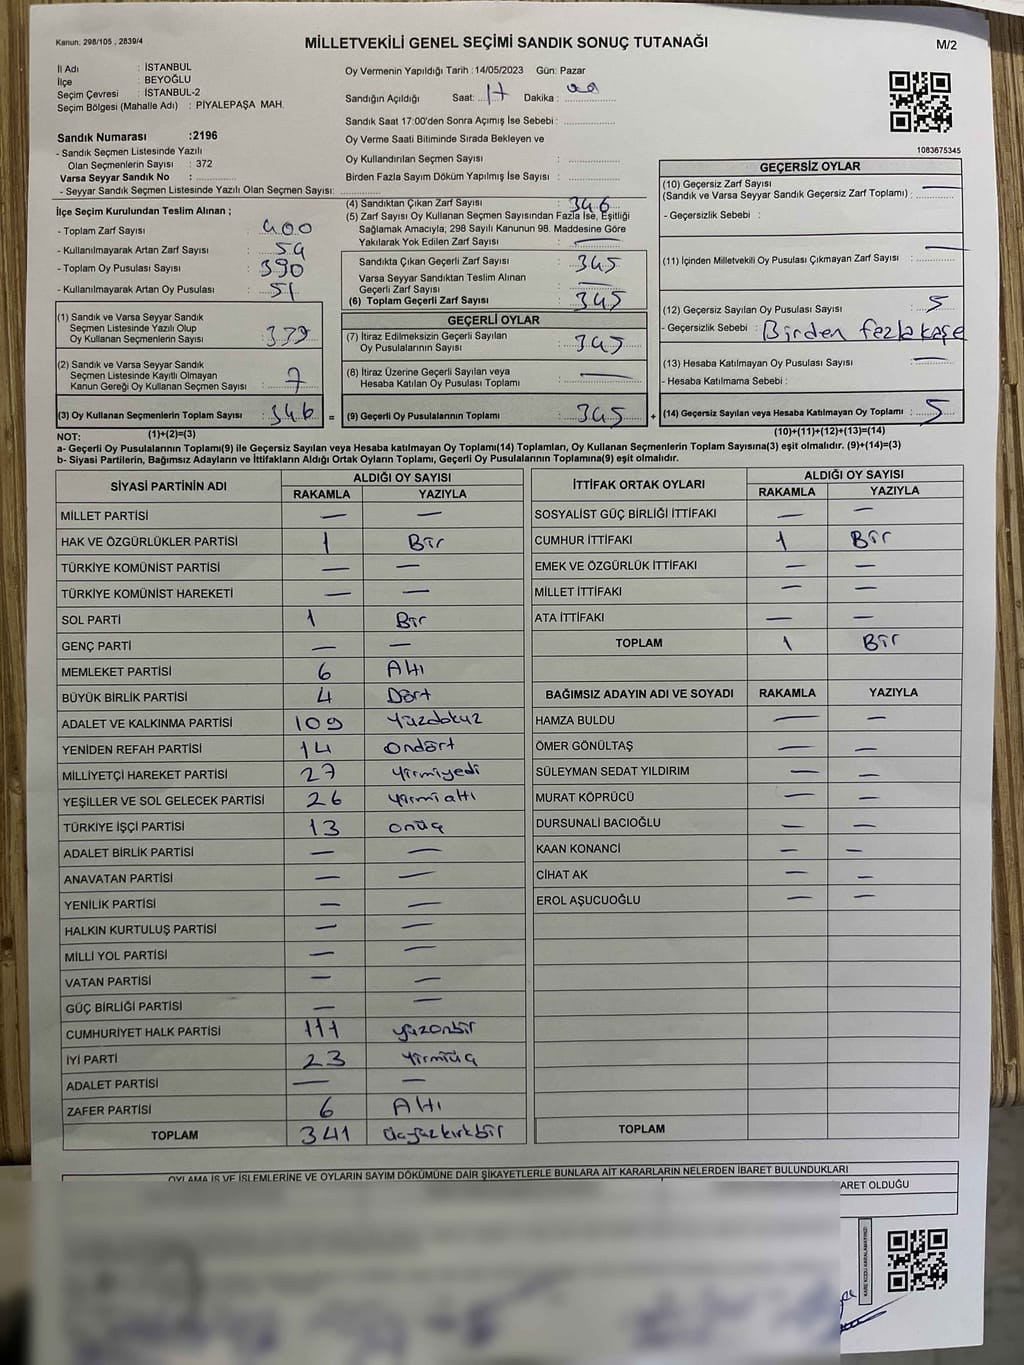 Kanun: 298/105 , 2839/4
MİLLETVEKİLİ GENEL SEÇİMİ SANDIK SONUÇ TUTANAĞI
M/2
İl Adı : İSTANBUL
İlçe : BEYOĞLU
Seçim Çevresi : İSTANBUL-2
Seçim Bölgesi (Mahalle Adı) : PİYALEPAŞA MAH.
Sandık Numarası :2196
- Sandık Seçmen Listesinde Yazılı
Olan Seçmenlerin Sayısı : 372
Varsa Seyyar Sandık No :
- Seyyar Sandık Seçmen Listesinde Yazılı Olan Seçmen Sayısı:
Oy Vermenin Yapıldığı Tarih :14/05/2023 Gün: Pazar
Sandığın Açıldığı Saat: 17 Dakika : 00
Sandık Saat 17:00'den Sonra Açımış İse Sebebi :
Oy Verme Saati Bitiminde Sırada Bekleyen ve
Oy Kullandırılan Seçmen Sayısı :
Birden Fazla Sayım Döküm Yapılmış İse Sayısı :
1083675345
İlçe Seçim Kurulundan Teslim Alınan ;
- Toplam Zarf Sayısı : 400
- Kullanılmayarak Artan Zarf Sayısı : 54
- Toplam Oy Pusulası Sayısı : 390
- Kullanılmayarak Artan Oy Pusulası : 51
(1) Sandık ve Varsa Seyyar Sandık
Seçmen Listesinde Yazılı Olup
Oy Kullanan Seçmenlerin Sayısı : 339
(2) Sandık ve Varsa Seyyar Sandık
Seçmen Listesinde Kayıtlı Olmayan
Kanun Gereği Oy Kullanan Seçmen Sayısı : 7
(3) Oy Kullanan Seçmenlerin Toplam Sayısı : 346
(1)+(2)=(3)
(4) Sandıktan Çıkan Zarf Sayısı : 346
(5) Zarf Sayısı Oy Kullanan Seçmen Sayısından Fazla İse, Eşitliği
Sağlamak Amacıyla; 298 Sayılı Kanunun 98. Maddesine Göre
Yakılarak Yok Edilen Zarf Sayısı : —
Sandıkta Çıkan Geçerli Zarf Sayısı : 345
Varsa Seyyar Sandıktan Teslim Alınan
Geçerli Zarf Sayısı : —
(6) Toplam Geçerli Zarf Sayısı : 345
GEÇERLİ OYLAR
(7) İtiraz Edilmeksizin Geçerli Sayılan
Oy Pusulalarının Sayısı : 345
(8) İtiraz Üzerine Geçerli Sayılan veya
Hesaba Katılan Oy Pusulası Toplamı : —
= (9) Geçerli Oy Pusulalarının Toplamı : 345
GEÇERSİZ OYLAR
(10) Geçersiz Zarf Sayısı
(Sandık ve Varsa Seyyar Sandık Geçersiz Zarf Toplamı) : —
- Geçersizlik Sebebi :
(11) İçinden Milletvekili Oy Pusulası Çıkmayan Zarf Sayısı : —
(12) Geçersiz Sayılan Oy Pusulası Sayısı : 5
- Geçersizlik Sebebi : Birden fezla kaşe
(13) Hesaba Katılmayan Oy Pusulası Sayısı : —
- Hesaba Katılmama Sebebi :
+ (14) Geçersiz Sayılan veya Hesaba Katılmayan Oy Toplamı : 5
(10)+(11)+(12)+(13)=(14)
NOT:
a- Geçerli Oy Pusulalarının Toplamı(9) ile Geçersiz Sayılan veya Hesaba katılmayan Oy Toplamı(14) Toplamları, Oy Kullanan Seçmenlerin Toplam Sayısına(3) eşit olmalıdır. (9)+(14)=(3)
b- Siyasi Partilerin, Bağımsız Adayların ve İttifakların Aldığı Ortak Oyların Toplamı, Geçerli Oy Pusulalarının Toplamına(9) eşit olmalıdır.
SİYASİ PARTİNİN ADI ALDIĞI OY SAYISI
RAKAMLA YAZIYLA
MİLLET PARTİSİ — —
HAK VE ÖZGÜRLÜKLER PARTİSİ 1 Bir
TÜRKİYE KOMÜNİST PARTİSİ — —
TÜRKİYE KOMÜNİST HAREKETİ — —
SOL PARTİ 1 Bir
GENÇ PARTİ — —
MEMLEKET PARTİSİ 6 Altı
BÜYÜK BİRLİK PARTİSİ 4 Dört
ADALET VE KALKINMA PARTİSİ 109 Yüzdokuz
YENİDEN REFAH PARTİSİ 14 Ondört
MİLLİYETÇİ HAREKET PARTİSİ 27 Yirmiyedi
YEŞİLLER VE SOL GELECEK PARTİSİ 26 Yirmi altı
TÜRKİYE İŞÇİ PARTİSİ 13 onüç
ADALET BİRLİK PARTİSİ — —
ANAVATAN PARTİSİ — —
YENİLİK PARTİSİ — —
HALKIN KURTULUŞ PARTİSİ — —
MİLLİ YOL PARTİSİ — —
VATAN PARTİSİ — —
GÜÇ BİRLİĞİ PARTİSİ — —
CUMHURİYET HALK PARTİSİ 111 yüzonbir
İYİ PARTİ 23 Yirmiüç
ADALET PARTİSİ — —
ZAFER PARTİSİ 6 Altı
TOPLAM 341 üçyüzkırkbir
İTTİFAK ORTAK OYLARI ALDIĞI OY SAYISI
RAKAMLA YAZIYLA
SOSYALİST GÜÇ BİRLİĞİ İTTİFAKI — —
CUMHUR İTTİFAKI 1 Bir
EMEK VE ÖZGÜRLÜK İTTİFAKI — —
MİLLET İTTİFAKI — —
ATA İTTİFAKI — —
TOPLAM 1 Bir
BAĞIMSIZ ADAYIN ADI VE SOYADI RAKAMLA YAZIYLA
HAMZA BULDU — —
ÖMER GÖNÜLTAŞ — —
SÜLEYMAN SEDAT YILDIRIM — —
MURAT KÖPRÜCÜ — —
DURSUNALİ BACIOĞLU — —
KAAN KONANCİ — —
CİHAT AK — —
EROL AŞUCUOĞLU — —
TOPLAM
OYLAMA İŞ VE İŞLEMLERİNE VE OYLARIN SAYIM DÖKÜMÜNE DAİR ŞİKAYETLERLE BUNLARA AİT KARARLARIN NELERDEN İBARET BULUNDUKLARI
ARET OLDUĞU
KARE KODU KARALAMAYINIZ!